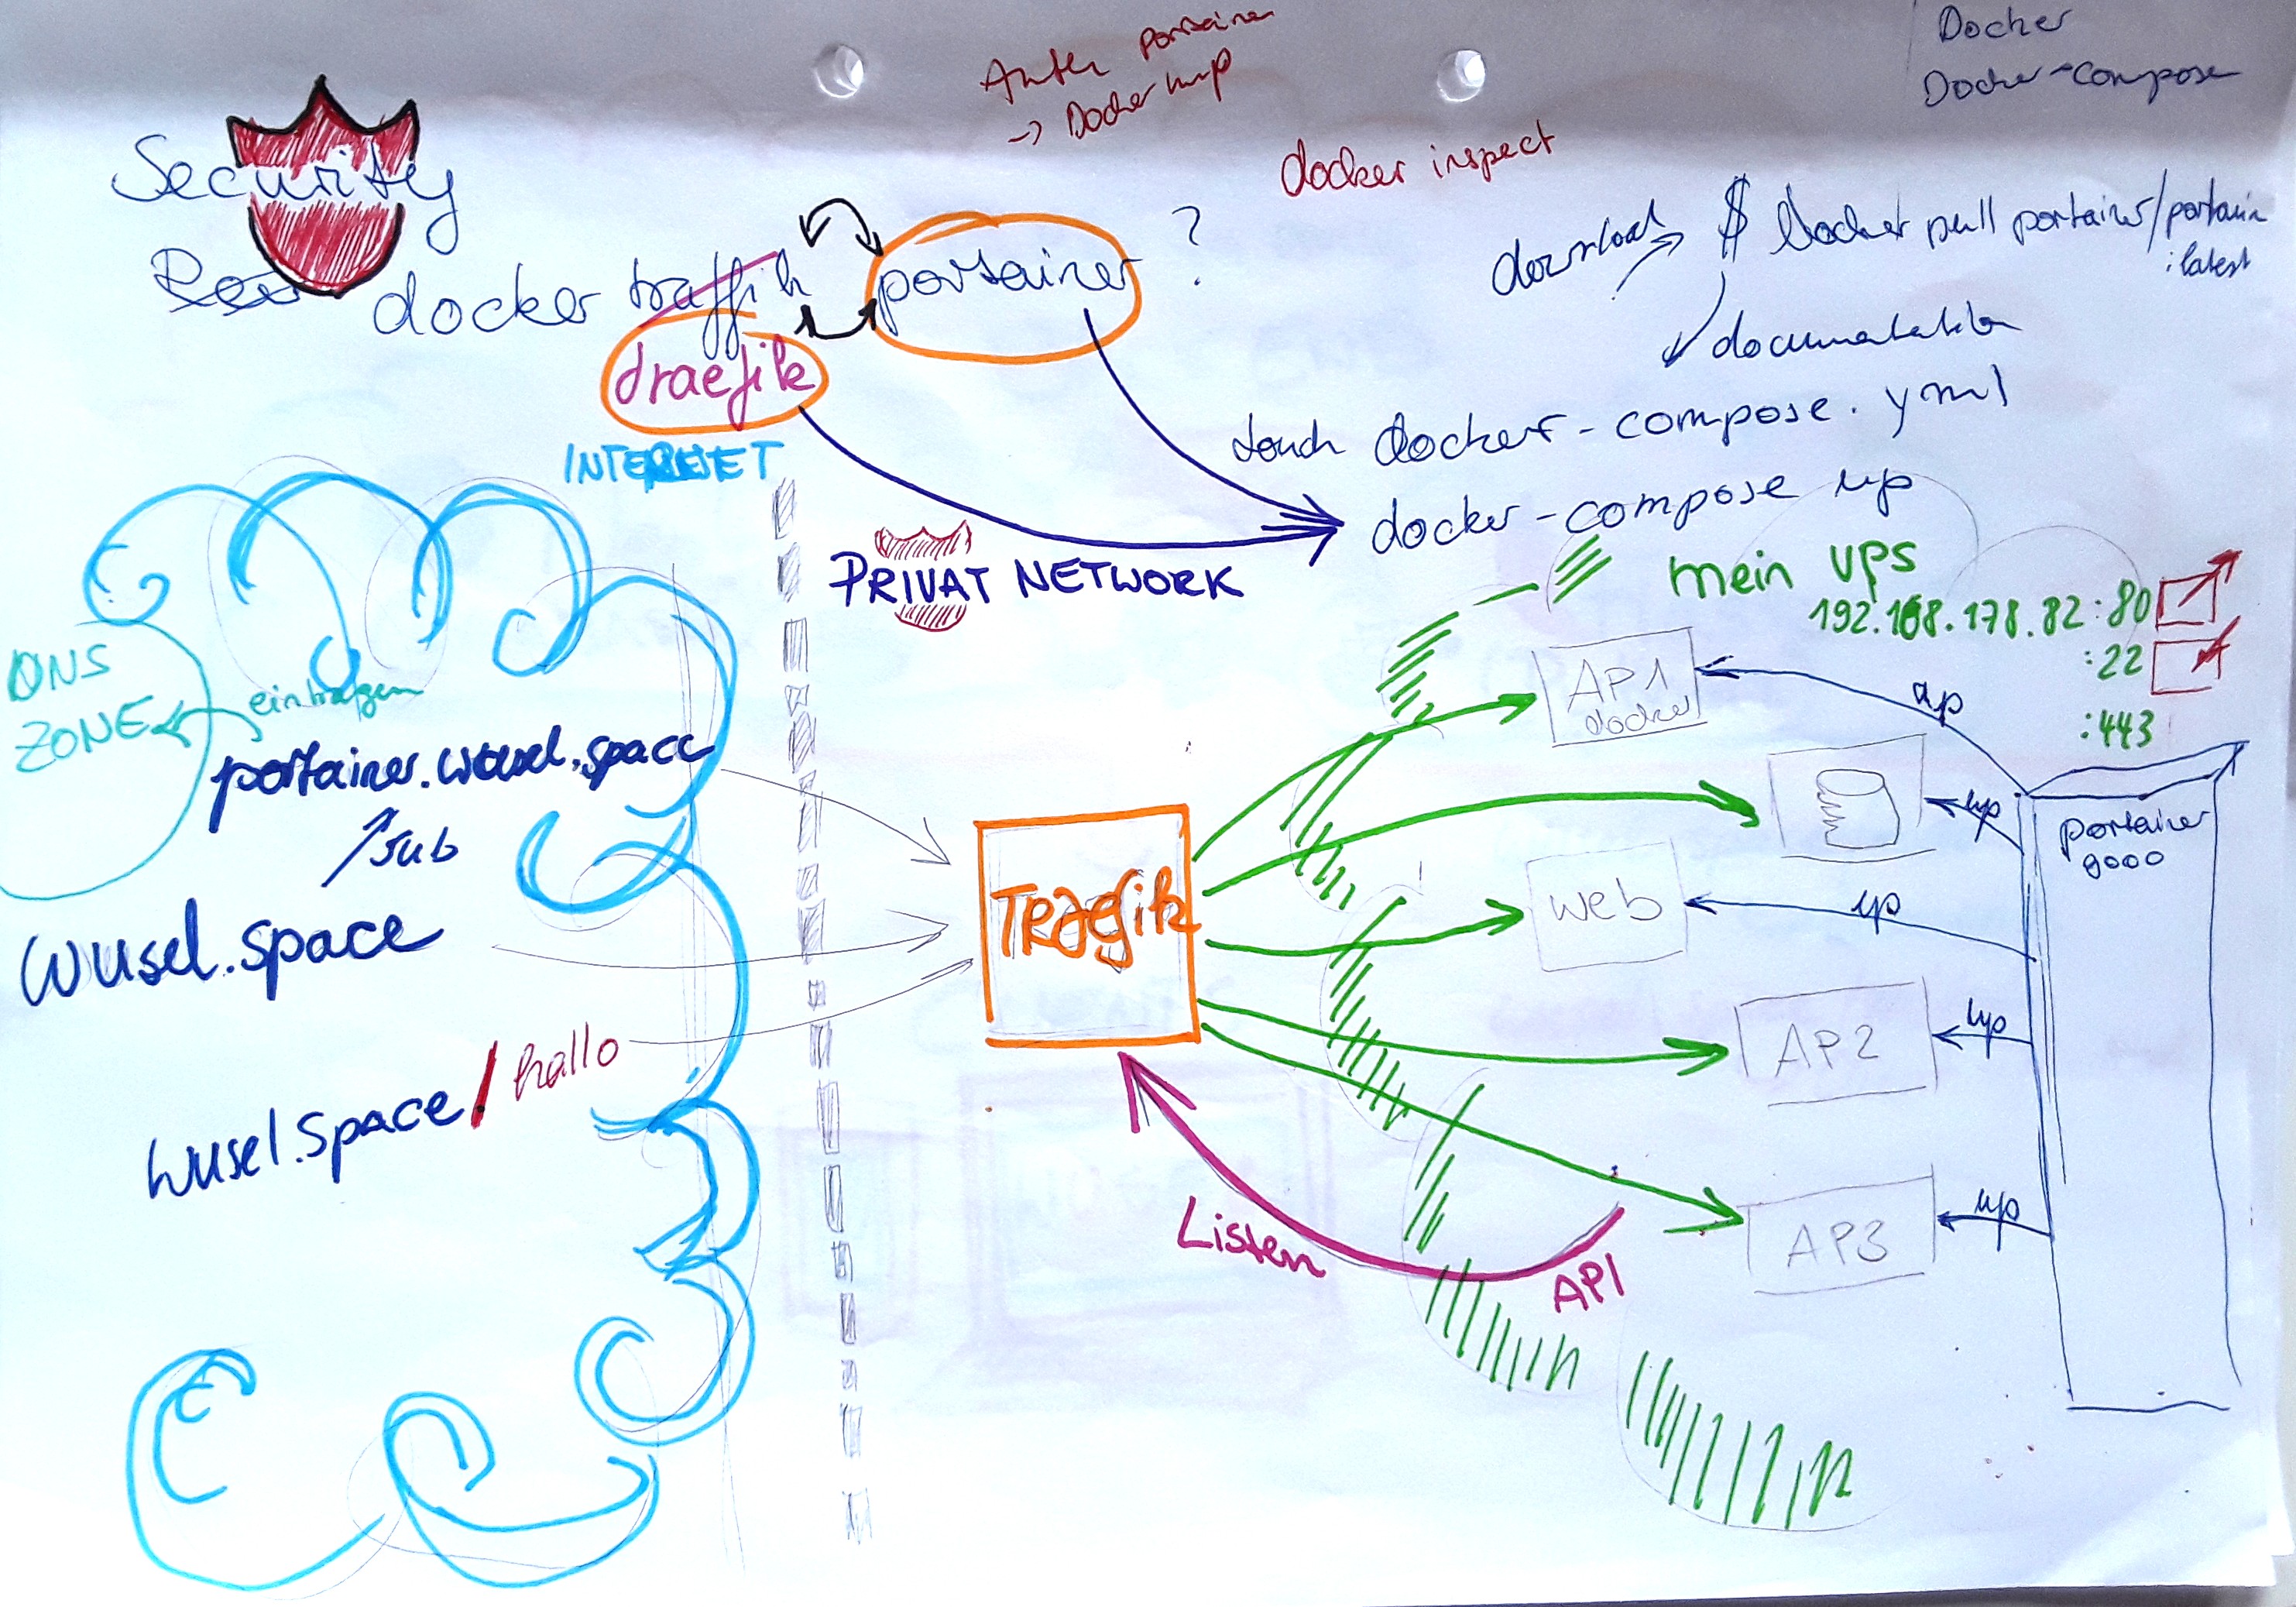 Docker
Docker-compose
portainer
→ Docker
docker inspect
Security
docker traffik portainer ?
draefik
download → $ Docker pull portainer/portain
:latest
documentation
touch docker-compose.yml
docker-compose up
INTERNET
PRIVAT NETWORK
mein VPS
192.168.178.82:80
:22
:443
DNS
ZONE
eintragen
portainer.wusel.space
sub
wusel.space
wusel.space/hallo
TRaefik
Listen
API
AP1
docker
web
AP2
AP3
up
up
up
up
up
portainer
9000